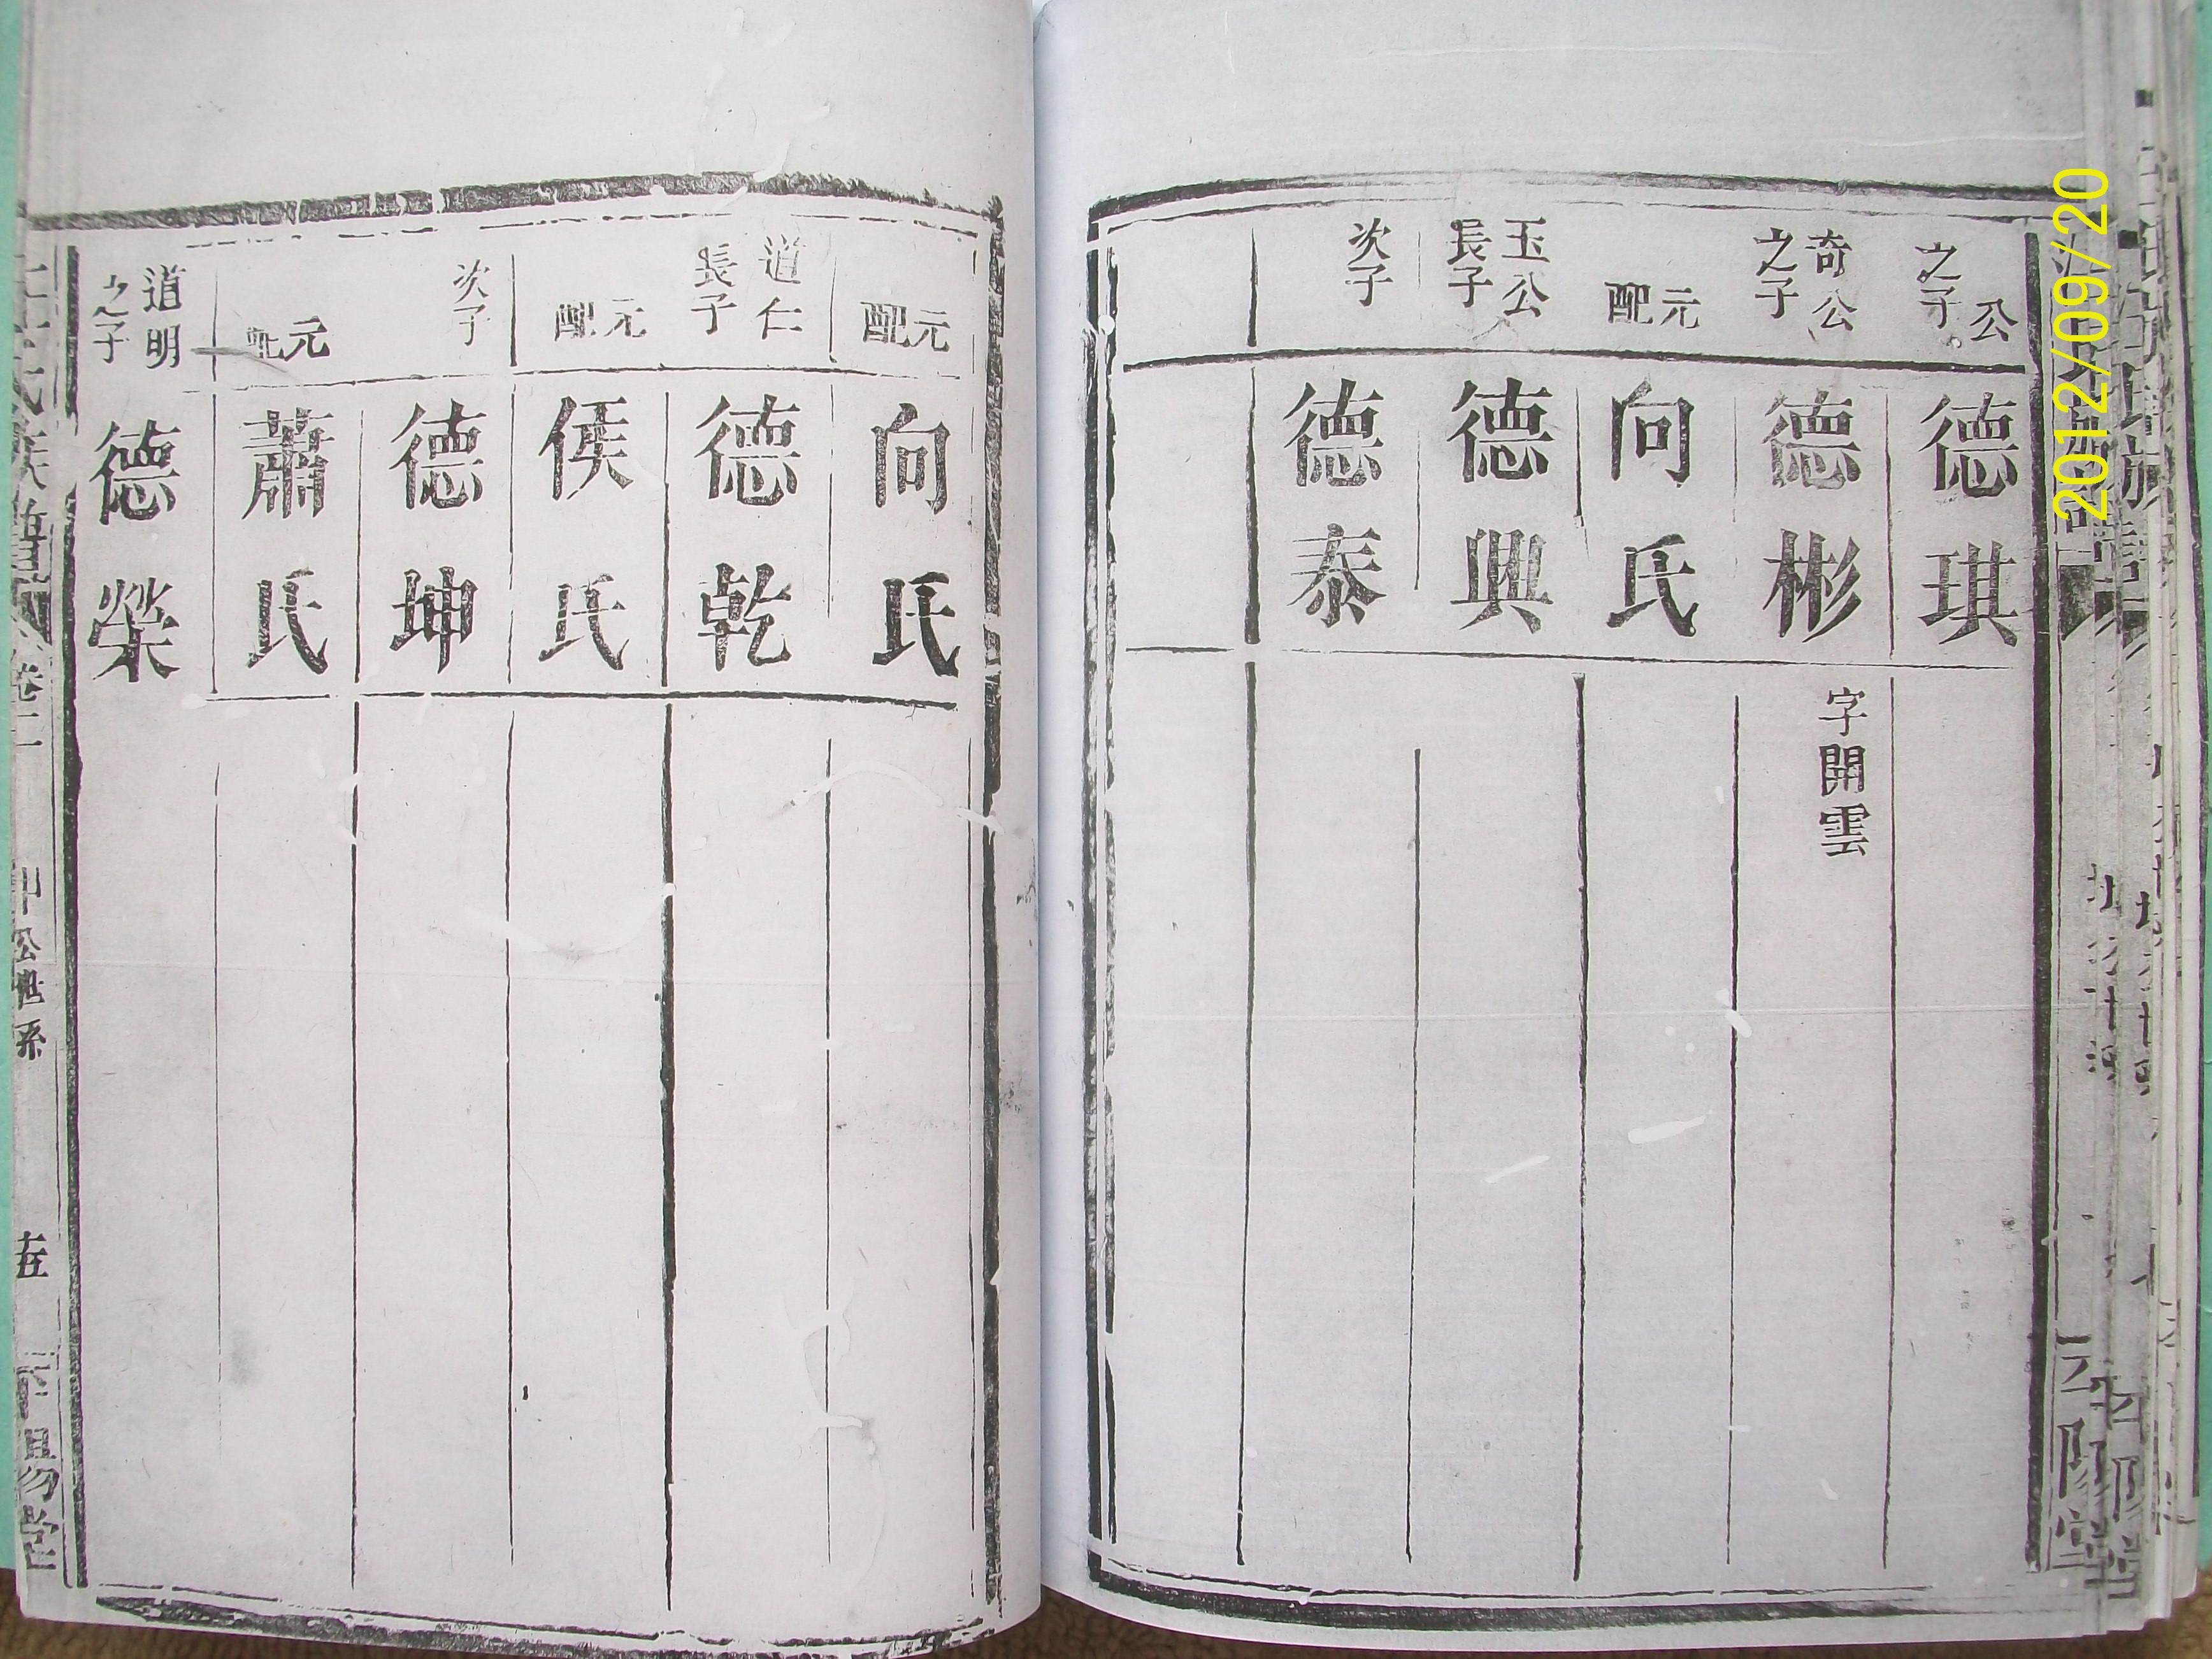 公之子 德琪
奇公之子 德彬 字開雲
元配 向氏
玉公長子 德興
次子 德泰
元配 向氏
道仁長子 德乾
元配 侯氏
次子 德坤
元配 蕭氏
道明之子 德榮
卷二
公世系
堂
2012/09/20